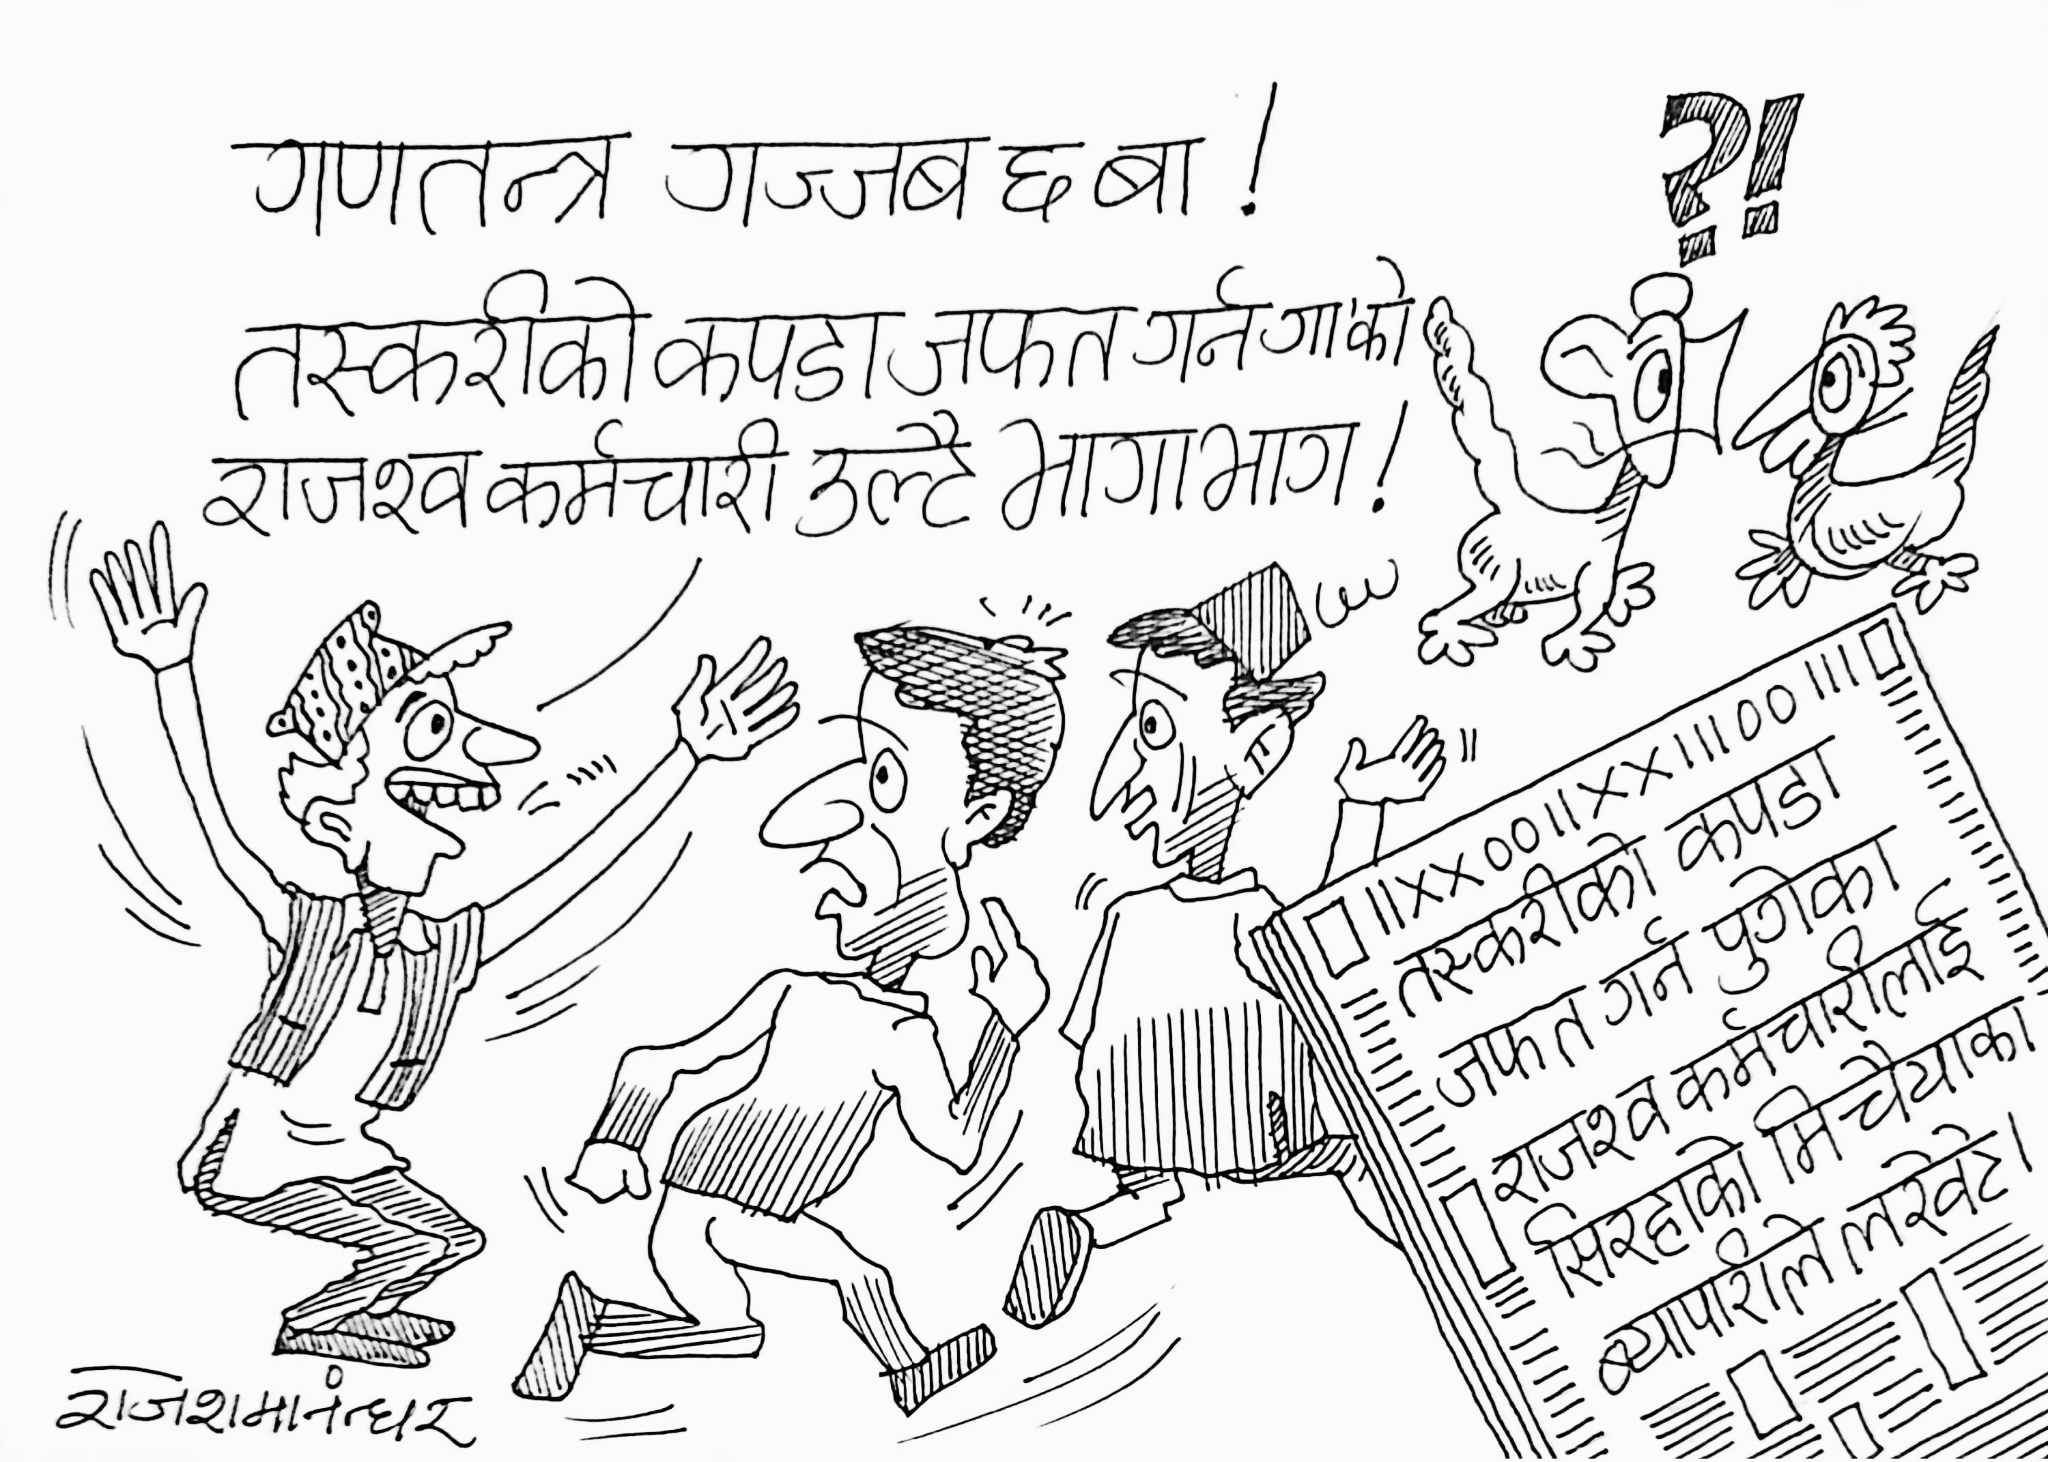 गणतन्त्र गज्जब छ बा !
तस्करीको कपडा जफत गर्न गा'को
राजश्व कर्मचारी उल्टै भागाभाग !
?!
तस्करीको कपडा
जफत गर्न पुगेका
राजश्व कर्मचारीलाई
सिरहाको मिर्चैयाका
व्यापारीले लखेटे।
राजेश मानन्धर